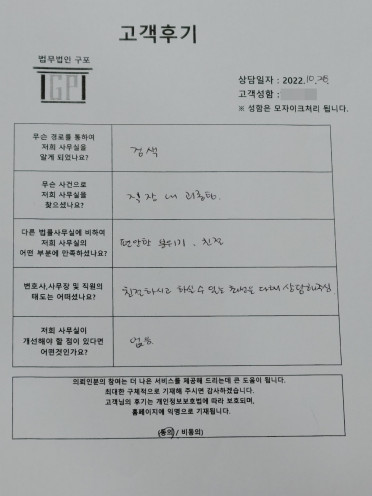 고객후기
법무법인 구포
GP
상담일자 : 2022.10.28
고객성함 :
※ 성함은 모자이크처리 됩니다.
무슨 경로를 통하여
저희 사무실을
알게 되었나요?
검색
무슨 사건으로
저희 사무실을
찾으셨나요?
직장 내 괴롭힘.
다른 법률사무실에 비하여
저희 사무실의
어떤 부분에 만족하셨나요?
편안한 분위기. 친절
변호사,사무장 및 직원의
태도는 어떠셨나요?
친절하시고 하실 수 있는 최선을 다해 상담해주심
저희 사무실이
개선해야 할 점이 있다면
어떤것인가요?
없음
의뢰인분의 참여는 더 나은 서비스를 제공해 드리는데 큰 도움이 됩니다.
최대한 구체적으로 기재해 주시면 감사하겠습니다.
고객님의 후기는 개인정보보호법에 따라 보호되며,
홈페이지에 익명으로 기재됩니다.
(동의 / 비동의)